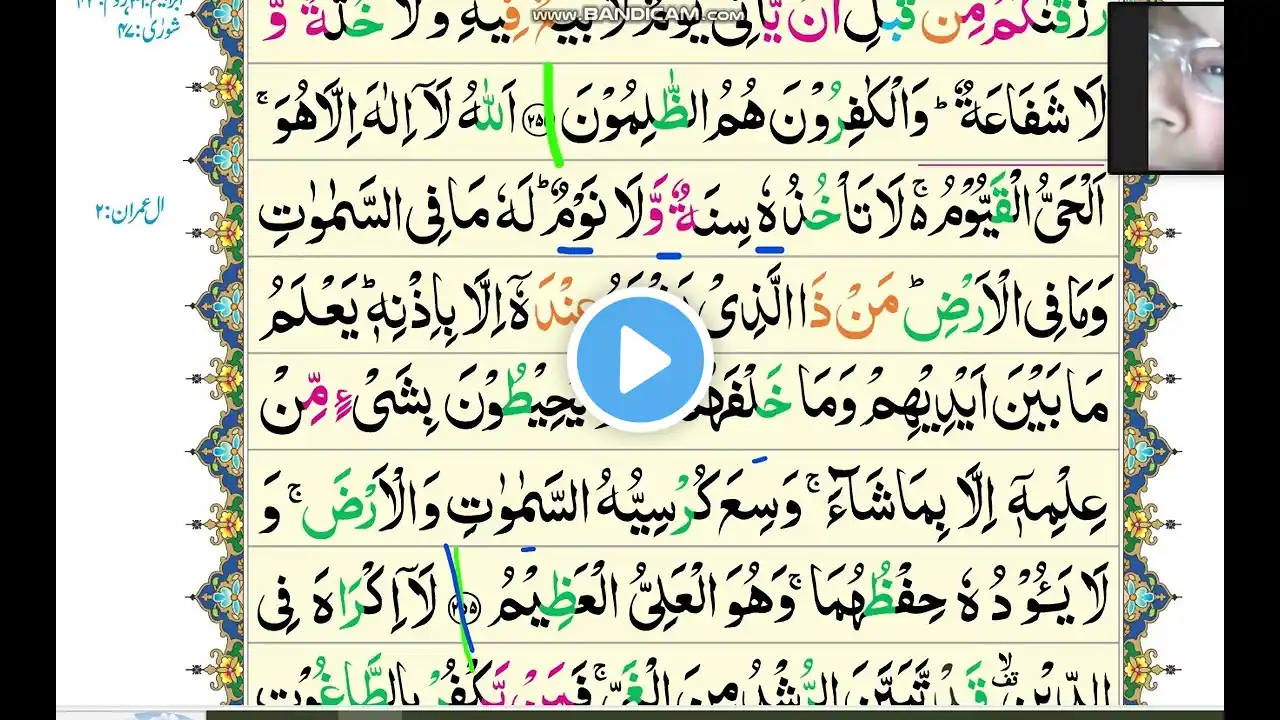 www.BANDICAM.com
رَزَقْنٰكُمْ مِّنْ قَبْلِ اَنْ يَّاْتِيَ يَوْمٌ لَّا بَيْعٌ فِيْهِ وَلَا خُلَّةٌ وَّ
شورٰى: ۴۷
لَا شَفَاعَةٌ ؕ وَالْكٰفِرُوْنَ هُمُ الظّٰلِمُوْنَ اَللّٰهُ لَاۤ اِلٰهَ اِلَّا هُوَ ۚ
اَلْحَیُّ الْقَيُّوْمُ ۚ۬ لَا تَاْخُذُهٗ سِنَةٌ وَّلَا نَوْمٌ ؕ لَهٗ مَا فِی السَّمٰوٰتِ
ال عمران: ۲
وَمَا فِی الْاَرْضِ ؕ مَنْ ذَا الَّذِیْ عِنْدَهٗۤ اِلَّا بِاِذْنِهٖ ؕ يَعْلَمُ
مَا بَيْنَ اَيْدِيْهِمْ وَمَا خَلْفَهُمْ يُحِيْطُوْنَ بِشَیْءٍ مِّنْ
عِلْمِهٖۤ اِلَّا بِمَا شَآءَ ۚ وَسِعَ كُرْسِيُّهُ السَّمٰوٰتِ وَالْاَرْضَ ۚ وَ
لَا يَـُٔوْدُهٗ حِفْظُهُمَا ۚ وَهُوَ الْعَلِیُّ الْعَظِيْمُ لَاۤ اِكْرَاهَ فِی
الدِّيْنِ ۙ قَدْ تَّبَيَّنَ الرُّشْدُ مِنَ الْغَیِّ ۚ فَمَنْ يَّكْفُرْ بِالطَّاغُوْتِ